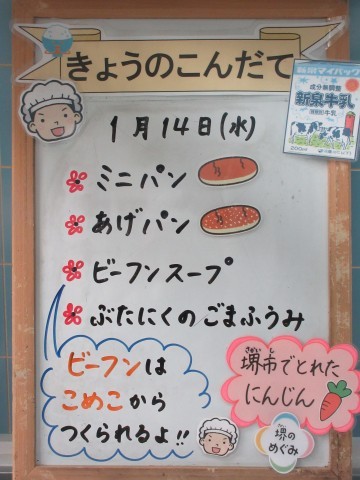 きょうのこんだて
1月14日(水)
ミニパン
あげパン
ビーフンスープ
ぶたにくのごまふうみ
ビーフンは
こめこから
つくられるよ!!
さかいし
堺市でとれた
にんじん
堺の
めぐみ
成分無調整
新泉牛乳